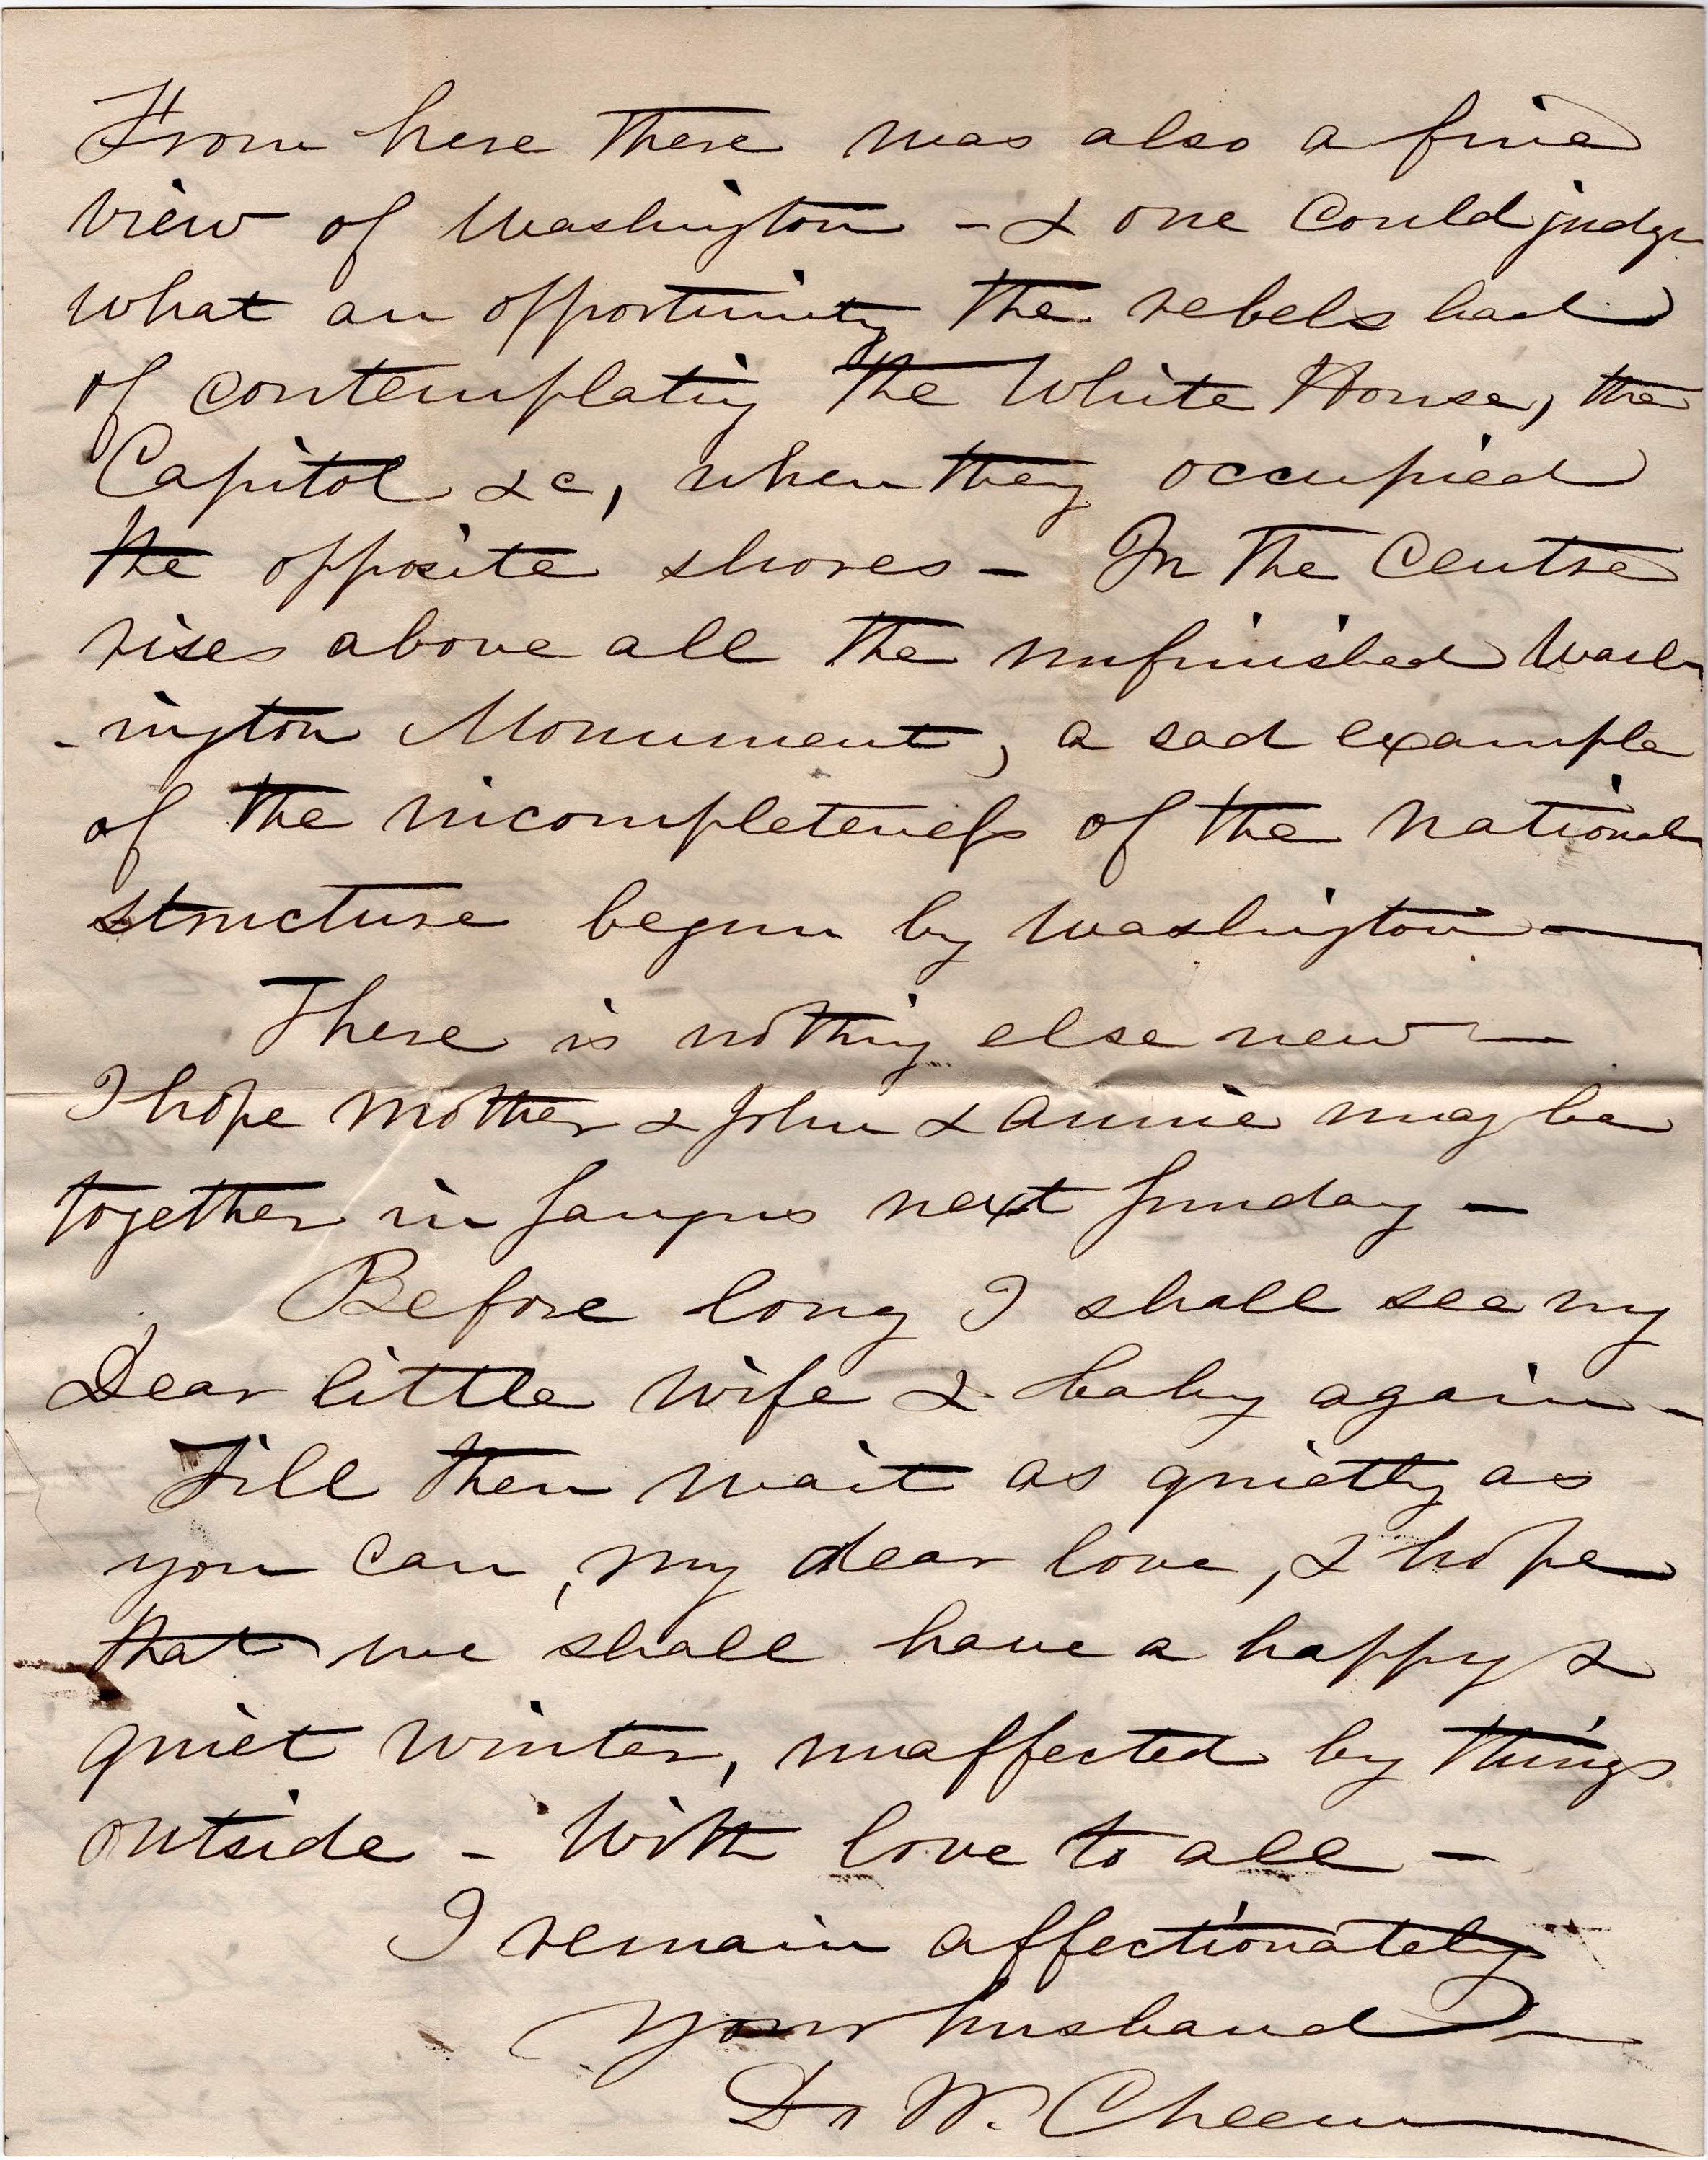 From here there was also a fine
view of Washington - & one could judge
what an opportunity the rebels had
of contemplating the White House, the
Capitol &c, when they occupied
the opposite shores - In the Centre
rises above all the unfinished Wash
-ington Monument, a sad example
of the incompleteness of the national
structure begun by Washington —
There is nothing else new —
I hope Mother & John & Annie may be
together in Saugus next Sunday -
Before long I shall see my
Dear little wife & baby again -
Till then wait as quietly as
you can, my dear love, & hope
that we shall have a happy &
quiet winter, unaffected by things
outside - With love to all -
I remain affectionately
Your husband —
D. W. Cheever